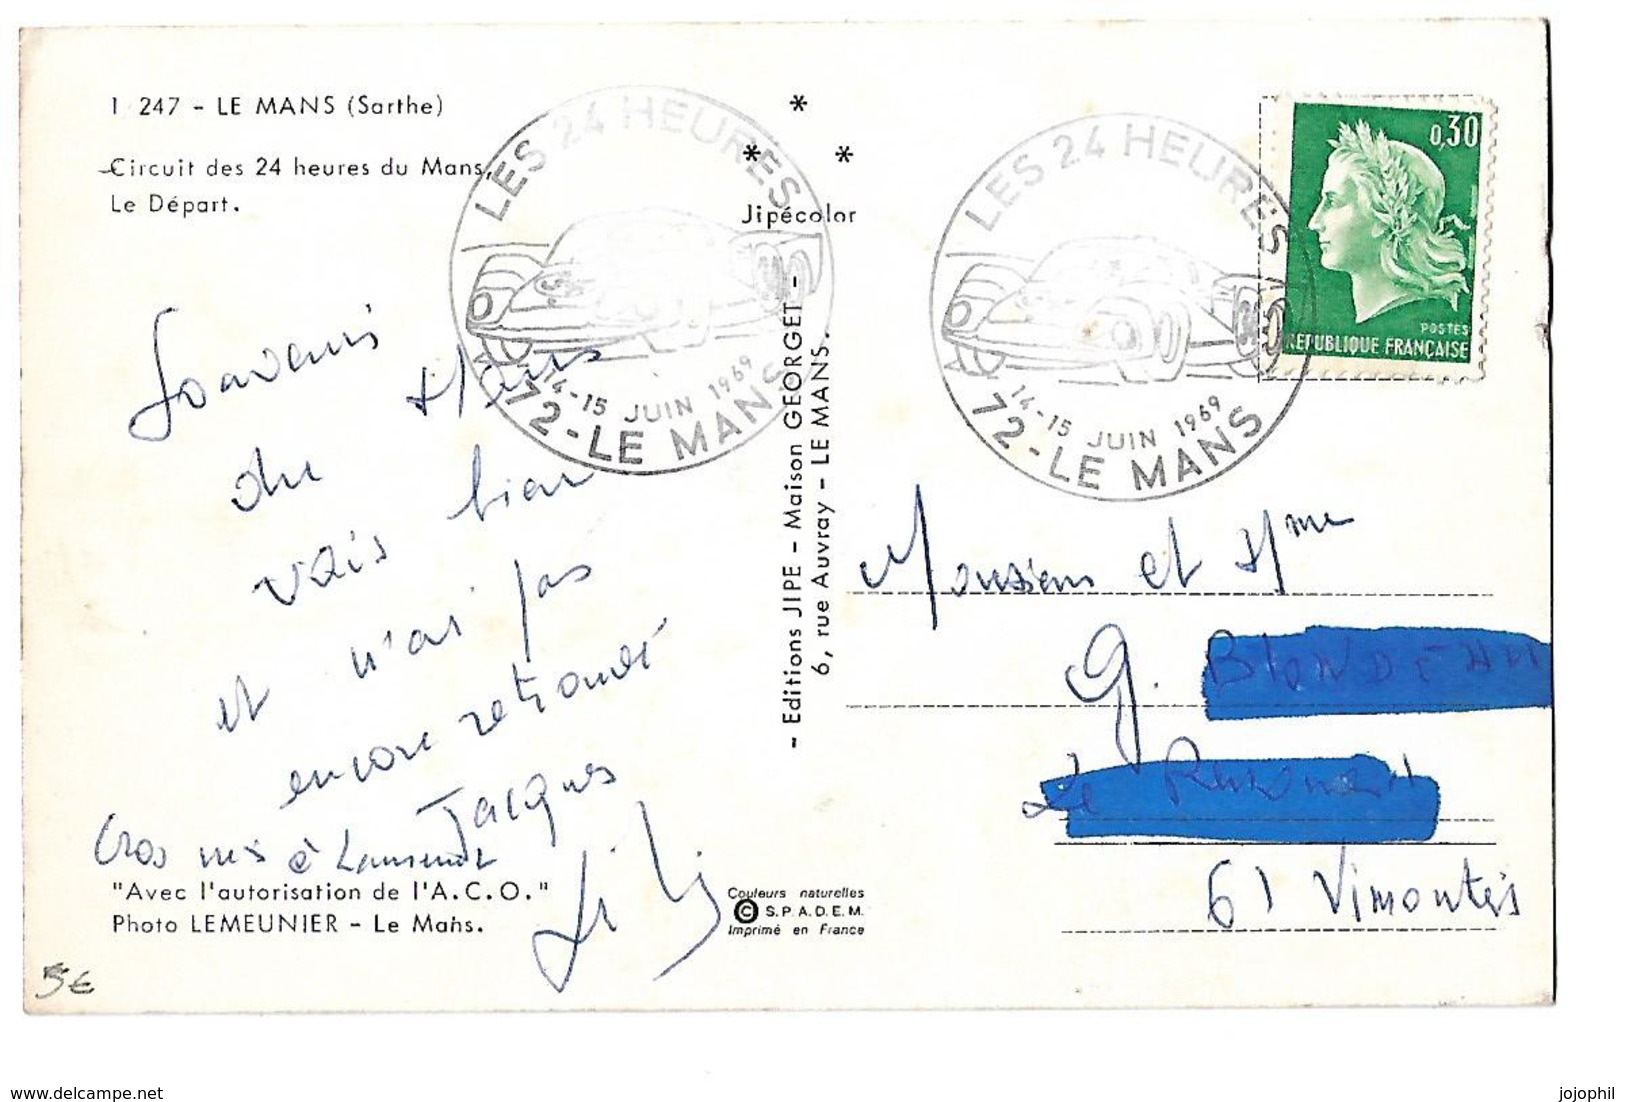 1 247 - LE MANS (Sarthe)
Circuit des 24 heures du Mans,
Le Départ.
LES 24 HEURES
14-15 JUIN 1969
72 - LE MANS
*
* *
Jipécolor
LES 24 HEURES
14-15 JUIN 1969
72 - LE MANS
0,30
POSTES
REPUBLIQUE FRANÇAISE
Souvenir
du Mans
vais bien
et n'ai pas
encore retrouvé
Jacques
Gros
"Avec l'autorisation de l'A.C.O."
Photo LEMEUNIER - Le Mans.
5€
- Editions JIPE - Maison GEORGET -
6, rue Auvray - LE MANS.
Couleurs naturelles
© S.P.A.D.E.M.
Imprimé en France
Monsieur et Mme
G.
Le
61 Vimoutiers
www.delcampe.net
jojophil